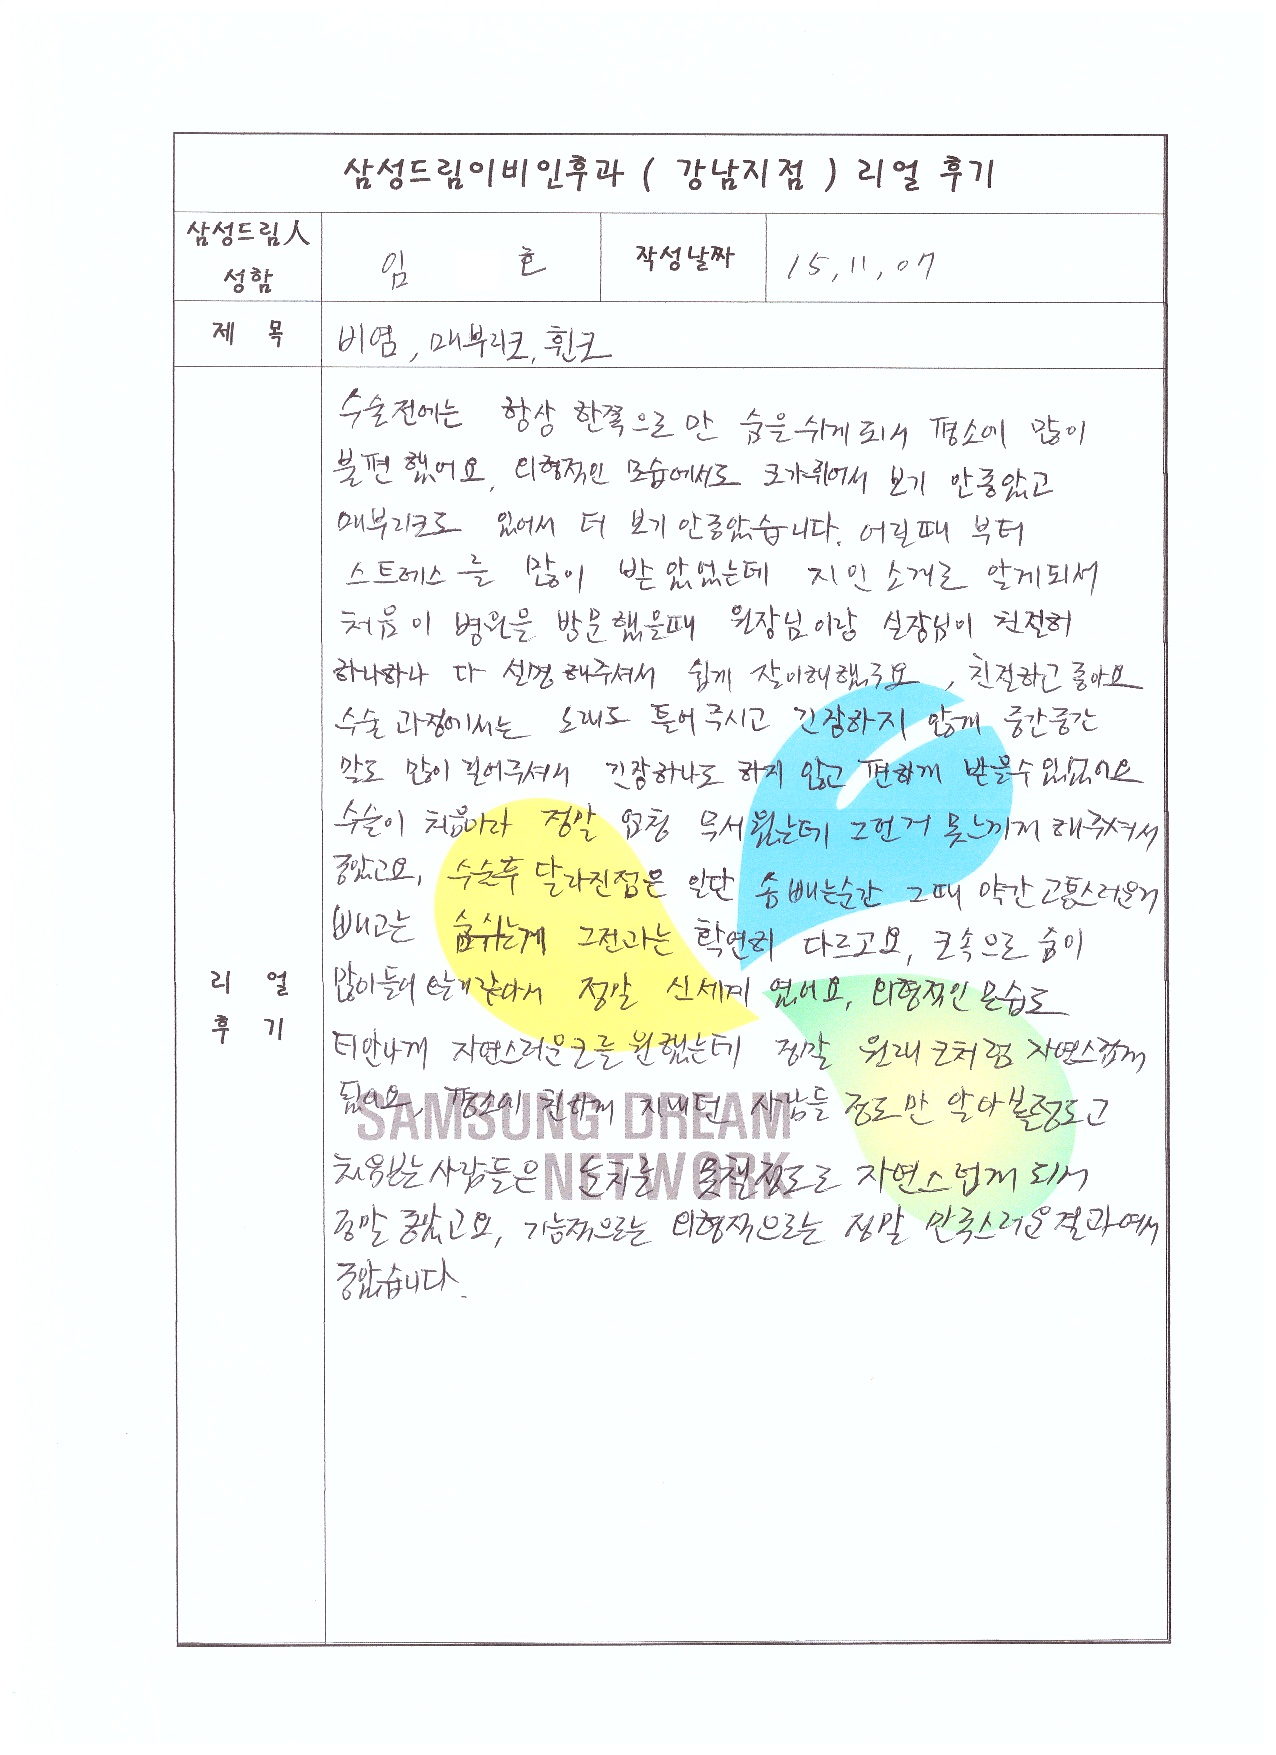 삼성드림이비인후과 ( 강남지점 ) 리얼 후기
삼성드림人 성함
임 호
작성날짜
15.11.07
제 목
비염, 매부리코, 휜코
리 얼 후 기
수술전에는 항상 한쪽으로 만 숨을쉬게되서 평소에 많이
불편했어요, 외형적인 모습에서도 코가휘어서 보기 안좋았고
매부리코도 있어서 더 보기안좋았습니다. 어릴때 부터
스트레스를 많이 받았었는데 지인 소개로 알게되서
처음 이 병원을 방문했을때 원장님이랑 실장님이 친절히
하나하나 다 설명해주셔서 쉽게 잘이해했구요, 친절하고좋아요
수술과정에서는 노래도 틀어주시고 긴장하지 않게 중간중간
말도 많이 걸어주셔서 긴장하나도 하지 않고 편하게 받을수있었어요
수술이 처음이라 정말 엄청 무서웠는데 그런거 못느끼게 해주셔서
좋았고요, 수술후 달라진점은 일단 솜빼는순간 그때 약간고통스러운거
빼고는 숨쉬는게 그전과는 확연히 다르고요, 코속으로 숨이
많이들어 정말 신세계 였어요, 외형적인 모습도
티안나게 자연스러운코를 원했는데 정말 원래코처럼 자연스럽게
됬어요, 평소에 친하게 지내던 사람들 정도만 알아볼정도고
처음보는사람들은 눈치를 못챌정도로 자연스럽게 되서
정말 좋았고요, 기능적으로는 외형적으로는 정말 만족스러운결과여서
좋았습니다.
SAMSUNG DREAM
NETWORK